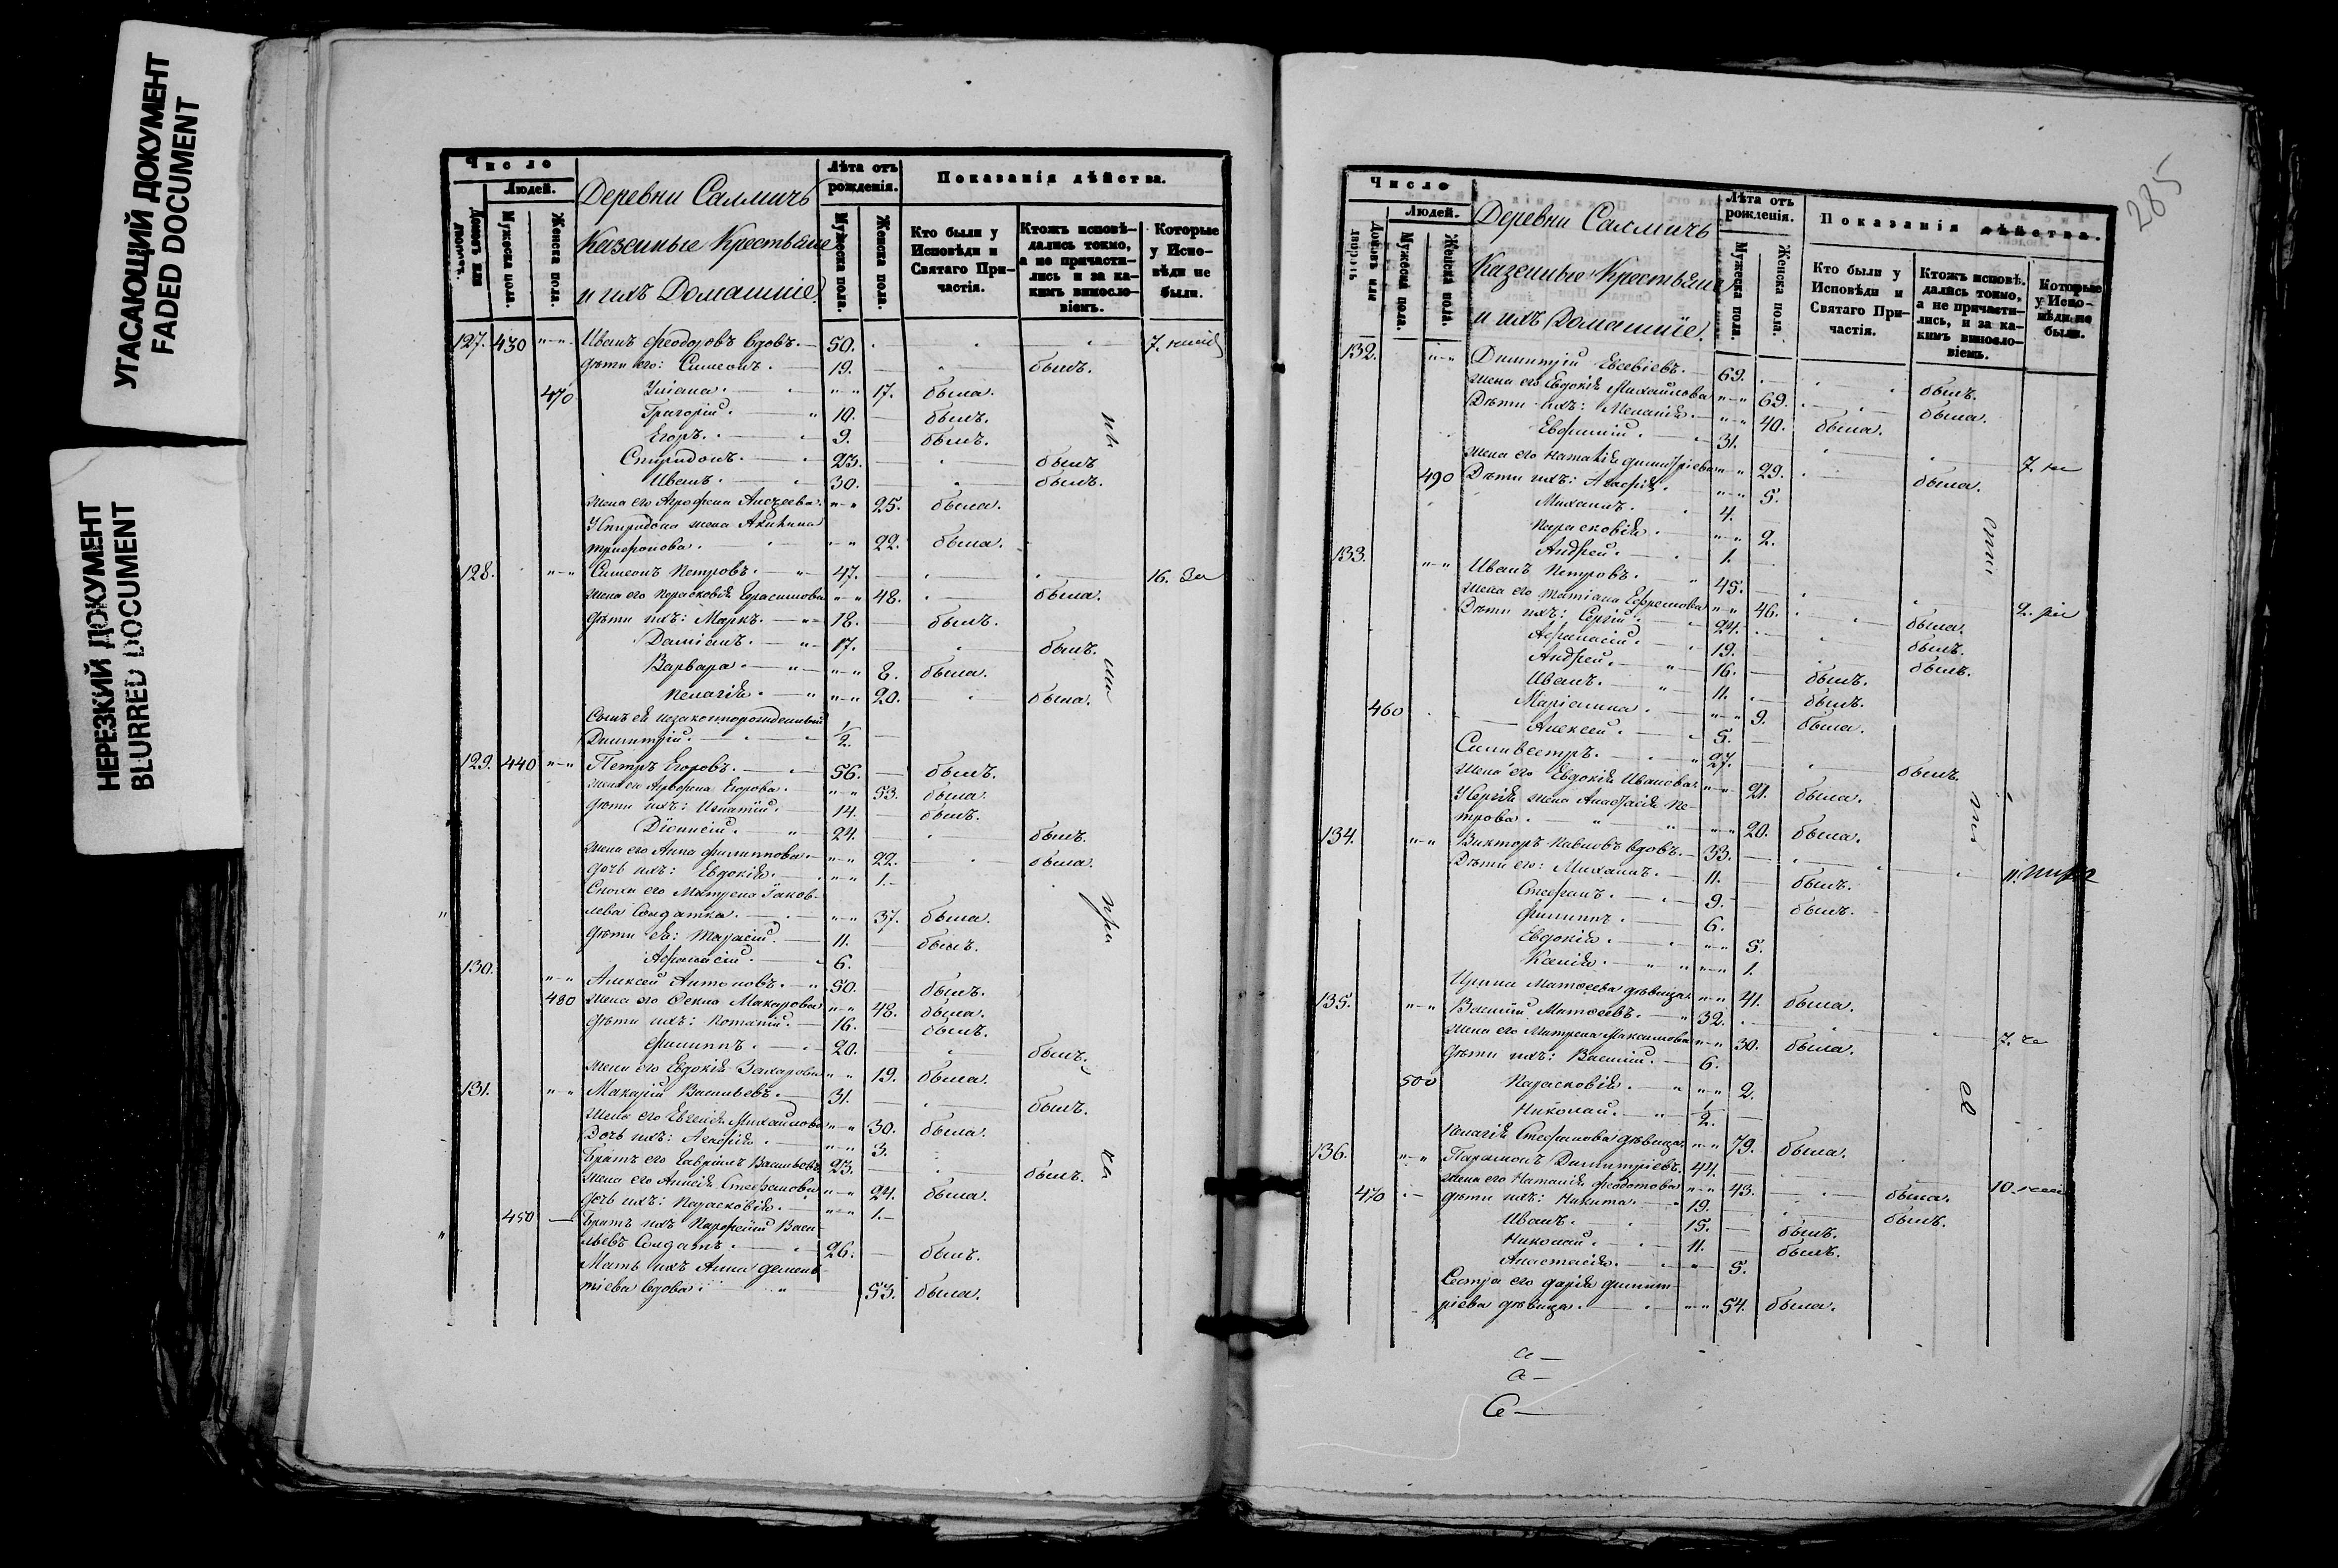 УГАСАЮЩИЙ ДОКУМЕНТ
FADED DOCUMENT
НЕРЕЗКИЙ ДОКУМЕНТ
BLURRED DOCUMENT
Число
Людей.
Домовъ или дворовъ.
Мужеска пола.
Женска пола.
Деревни Саллничъ
Казенные Крестьяне
и ихъ Домашніе.
Лѣта отъ рожденія.
Мужеска пола.
Женска пола.
Показанія дѣйства.
Кто были у Исповѣди и Святаго Причастія.
Ктожъ исповѣдались токмо, а не причастились и за какимъ винословіемъ.
Которые у Исповѣди не были.
127. 430 Иванъ Феодоровъ вдовъ. 50. 7.
дѣти его: Симеонъ. 19. былъ.
470 Уліана. 17. была.
Григорій. 10. былъ.
Егоръ. 9. былъ.
Спиридонъ. 23. былъ
Иванъ. 30. былъ.
жена его Агрофена 25. была.
У Спиридона жена Акилина
Трифонова. 22. была.
128. Симеонъ Петровъ. 47. 16. За
жена его Парасковія Герасимова 48. была.
дѣти ихъ: Маркъ. 18. былъ.
Даміанъ. 17. былъ.
Варвара. 8. была.
Пелагія. 20. была.
Сынъ ея незаконнорожденный
Димитрій. 1/2.
129. 440 Петръ Егоровъ. 56. былъ.
жена его Агрофена Егорова. 53. была.
дѣти ихъ: Игнатій. 14. былъ.
Діонисій. 24. былъ.
жена его Анна Филиппова. 22. была.
дочь ихъ: Евдокія. 1.
Сноха его Матрена Іаков-
лева Солдатка. 37. была.
дѣти ея: Тарасій. 11. былъ.
Афанасій. 6.
130. Алексей Антоновъ. 50. былъ.
480 жена его Фекла Макарова 48. была.
дѣти ихъ: Потапій. 16. былъ.
Филиппъ. 20. былъ.
жена его Евдокія Захарова 19. была.
131. Макарій Васильевъ. 31. былъ.
жена его Евгенія Михайлова 30. была.
Дочь ихъ: Агафія. 3.
Братъ его Гавріилъ Васильевъ 23. былъ.
жена его Анисія Стефанова 24. была.
дочь ихъ: Парасковія. 1.
450 Братъ ихъ Парфеній Васи-
льевъ Солдатъ. 26. былъ.
Мать ихъ Анна Демен-
тіева вдова. 53. была.
285
Число
Людей.
Домовъ или дворовъ
Мужеска пола.
Женска пола.
Деревни Саллничъ
Казенные Крестьяне
и ихъ Домашніе.
Лѣта отъ рожденія.
Мужеска пола.
Женска пола.
Показанія дѣйства.
Кто были у Исповѣди и Святаго Причастія.
Ктожъ исповѣдались токмо, а не причастились, и за какимъ винословіемъ.
Которые у Исповѣди не были.
132. Димитрій Евсевіевъ. 69. былъ.
жена его Евдокія Михайлова 69. была.
Дѣти ихъ: Меланія. 40. была.
Евфимій. 31. 7. не
жена его Наталія Димитріева 29. была.
490 Дѣти ихъ: Агафія. 5.
Михаилъ. 4.
Парасковія. 2.
Андрей. 1.
133. Иванъ Петровъ. 45. 2.
жена его Татіана Ефремова 46. была.
Дѣти ихъ: Сергій. 24. былъ.
Афанасій. 19. былъ.
Андрей. 16. былъ.
Иванъ. 11. былъ.
460 Маріанна. 9. была.
Алексей. 5.
Сильвестръ. 27. былъ.
жена его Евдокія Иванова. 21. была.
У Сергія жена Анастасія Пе-
трова. 20. была.
134. Викторъ Павловъ вдовъ. 33. 11.
Дѣти его: Михаилъ. 11. былъ.
Стефанъ. 9. былъ.
Филиппъ. 6.
Евдокія. 5.
Ксенія. 1.
Ирина Матфеева дѣвица. 41. была.
135. Василій Матфеевъ. 32. 7.
жена его Матрена Максимова 30. была.
дѣти ихъ: Василій. 6.
500 Парасковія. 2.
Николай. 1/2.
Пелагія Стефанова дѣвица. 79. была.
136. Парамонъ Димитріевъ. 44. 10.
жена его Наталія Федотова 43. была.
470 дѣти ихъ: Никита. 19. былъ.
Иванъ. 15. былъ.
Николай. 11. былъ.
Анастасія. 5.
Сестра его Дарія Димит-
ріева дѣвица. 54. была.